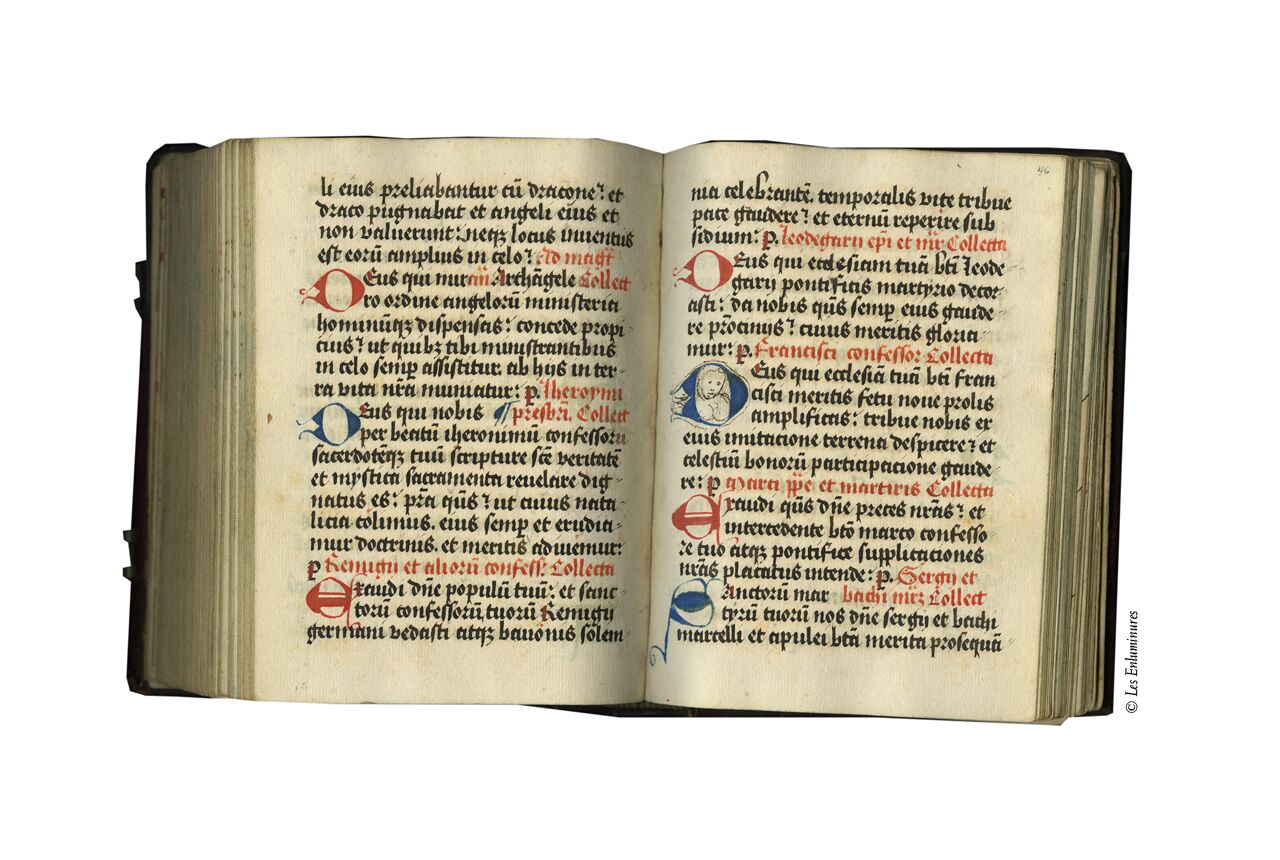 li eius preliabantur cū dracone: et
draco pugnabat et angeli eius et
non valuerunt: neqꝫ locus inventus
est eorū amplius in celo: Ad magᷓt
Deus qui miram Archāgele Collect
ro ordine angelorū ministeria
hominūqꝫ dispensas: concede propi
cius: ut quibꝫ tibi ministrantibus
in celo semꝑ assistitur. ab hijs in ter-
ra vita nrā muniatur: p. Iheronimi
Deus qui nobis ¶ presbri. Collect
per beatū iheronimū confessorū
sacerdotēqꝫ tuū scripture scē veritatē
et mystica sacramenta reuelare dig-
natus es: prā qūs: ut cuius nata-
licia colimus. eius semꝑ et erudia-
mur doctrinis. et meritis adiuemur:
p Remigij et aliorū confess: Collecta
Exaudi dn̄e populū tuū: et sanc-
torū confessorū tuorū Remigij
germani vedasti atqꝫ bauonis solem-
46
nia celebrantē. temporalis vite tribue
pace gaudere: et eternū reperire sub
sidium: p. leodegarij epi et mr̄ Collecta
Deus qui ecclesiam tuā bti leode-
garij pontificis martyrio decor-
asti: da nobis qūs semꝑ eius gaude-
re prōcinijs: cuius meritis gloria
mur: p. Francisci confessor Collecta
Deus qui ecclesiā tuā bti fran
cisci meritis fetu noue prolis
amplificas: tribue nobis ex
eius imitacione terrena despicere: et
celestiū bonorū participacione gaude-
re: p Marci pp̄e et martiris Collecta
Exaudi qūs dn̄e preces nrās: et
intercedente btō marco confesso-
re tuo atqꝫ pontifice supplicaciones
nrās placatus intende: p. Sergij et
Sanctorū mar bachi mr̄ꝫ Collect
tyrū tuorū nos dn̄e sergij et bachi
marcelli et apulei btā merita prosequā-
© Les Enluminures